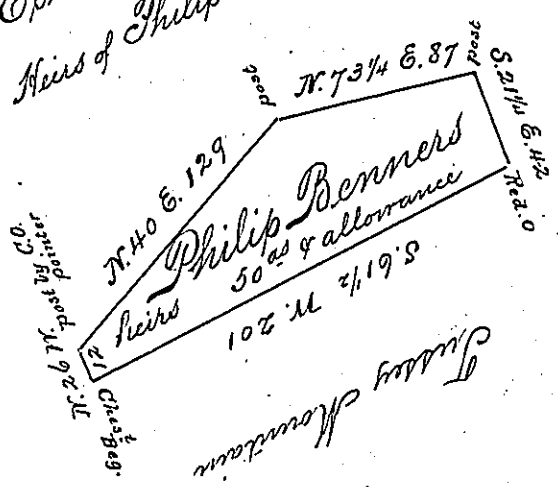 Heirs of Philip
post
N. 73 1/4 E. 87
post
S. 21 1/4 E. 42
Red. O
N. 40 E. 129
Philip Benners
heirs 50 as & allowance
S. 61 1/2 W. 201
post by C.O.
pointer
N. 26 W.
12
Chest
Beg.
Tussey Mountain